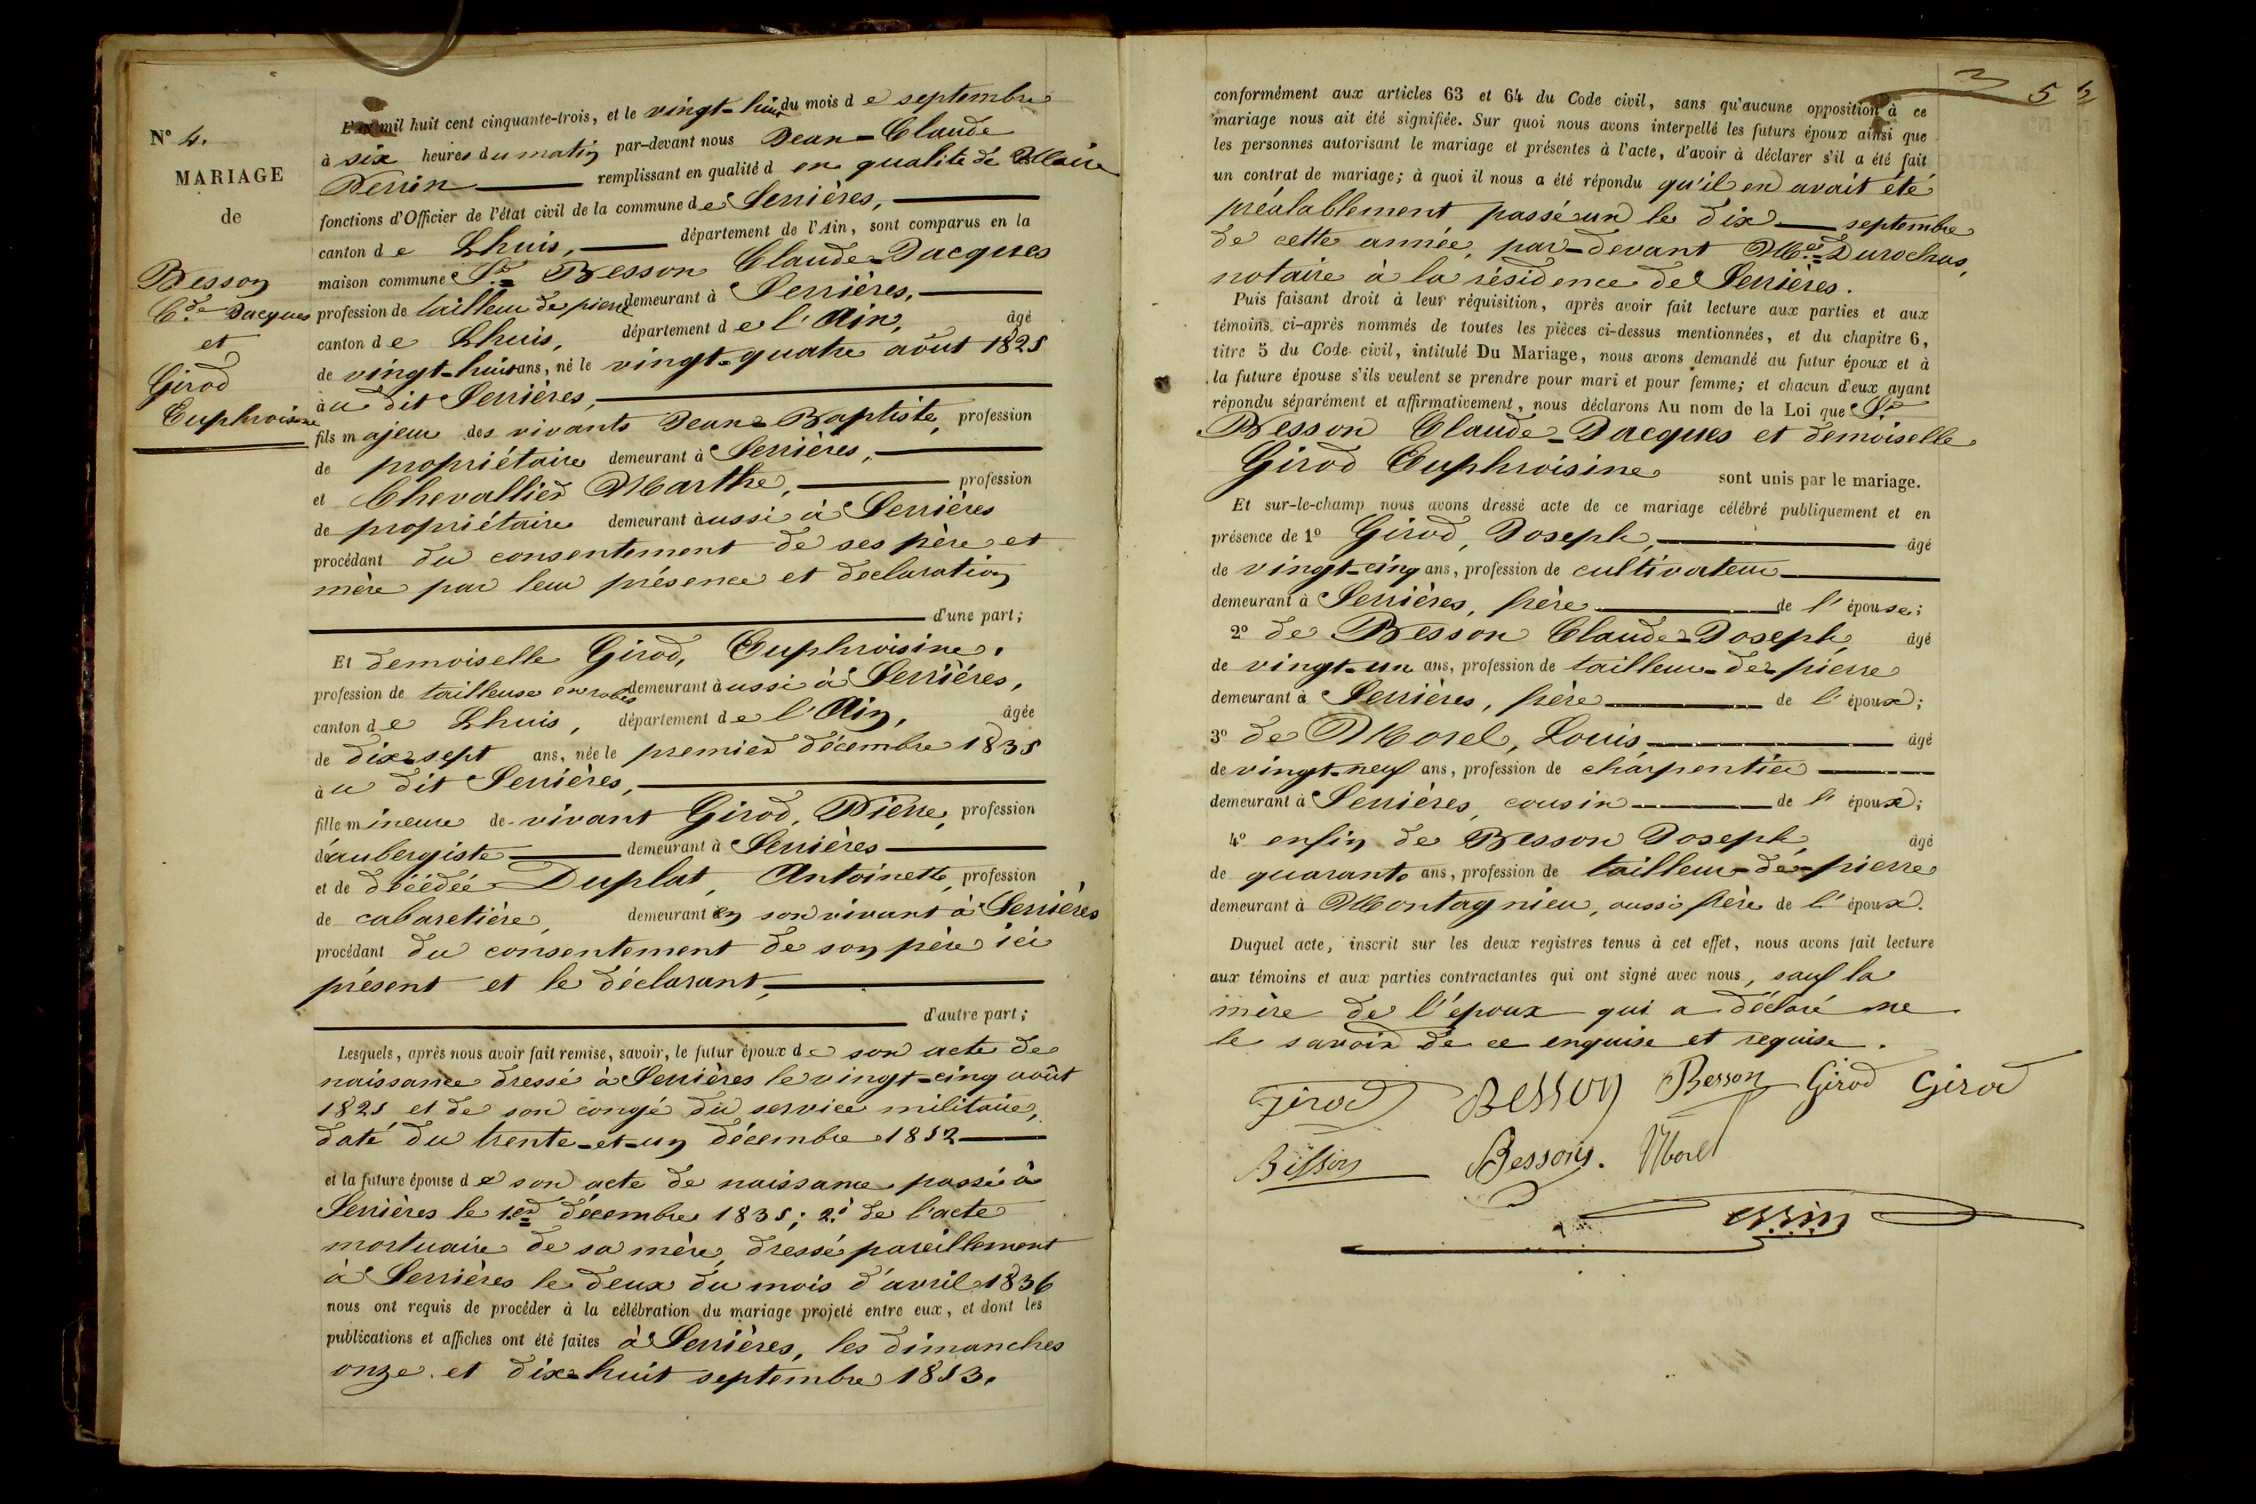 N° 4.
MARIAGE
de
Besson
C.de Jacques
et
Girod
Euphroisine
L'an mil huit cent cinquante-trois, et le vingt-huit du mois de septembre
à six heures du matin par-devant nous Jean-Claude
Perrin remplissant en qualité d en qualité de Maire les
fonctions d'Officier de l'état civil de la commune de Serrières,
canton de Lhuis, département de l'Ain, sont comparus en la
maison commune S.r Besson Claude-Jacques
profession de tailleur de pierre demeurant à Serrières,
canton de Lhuis, département de l'Ain, âgé
de vingt-huit ans, né le vingt-quatre août 1825
à u dit Serrières,
fils majeur des vivants Jean-Baptiste, profession
de propriétaire demeurant à Serrières,
et Chevallier Marthe, profession
de propriétaire demeurant aussi à Serrières
procédant du consentement de ses père et
mère par leur présence et declaration
d'une part;
Et demoiselle Girod, Euphroisine,
profession de tailleuse en robes demeurant aussi à Serrières,
canton de Lhuis, département de l'Ain, âgée
de dix-sept ans, née le premier décembre 1835
à u dit Serrières,
fille mineure de vivant Girod, Pierre, profession
d'aubergiste demeurant à Serrières
et de décédée Duplat, Antoinette, profession
de cabaretière, demeurant en son vivant à Serrières
procédant du consentement de son père ici
présent et le déclarant,
d'autre part;
Lesquels, après nous avoir fait remise, savoir, le futur époux de son acte de
naissance dressé à Serrières le vingt-cinq août
1825 et de son congé du service militaire,
daté du trente-et-un décembre 1852
et la future épouse de son acte de naissance passé à
Serrières le 1.er décembre 1835; 2.° de l'acte
mortuaire de sa mère, dressé pareillement
à Serrières le deux du mois d'avril 1836
nous ont requis de procéder à la célébration du mariage projeté entre eux, et dont les
publications et affiches ont été faites à Serrières, les dimanches
onze et dix-huit septembre 1853.
5
conformément aux articles 63 et 64 du Code civil, sans qu'aucune opposition à ce
mariage nous ait été signifiée. Sur quoi nous avons interpellé les futurs époux ainsi que
les personnes autorisant le mariage et présentes à l'acte, d'avoir à déclarer s'il a été fait
un contrat de mariage; à quoi il nous a été répondu qu'il en avait été
préalablement passé un le dix septembre
de cette année, par-devant M.e Durochas,
notaire à la résidence de Serrières.
Puis faisant droit à leur réquisition, après avoir fait lecture aux parties et aux
témoins ci-après nommés de toutes les pièces ci-dessus mentionnées, et du chapitre 6,
titre 5 du Code civil, intitulé Du Mariage, nous avons demandé au futur époux et à
la future épouse s'ils veulent se prendre pour mari et pour femme; et chacun d'eux ayant
répondu séparément et affirmativement, nous déclarons Au nom de la Loi que S.r
Besson Claude-Jacques et demoiselle
Girod Euphroisine sont unis par le mariage.
Et sur-le-champ nous avons dressé acte de ce mariage célébré publiquement et en
présence de 1° Girod, Joseph, âgé
de vingt-cinq ans, profession de cultivateur
demeurant à Serrières, frère de l'épouse;
2° de Besson Claude-Joseph, âgé
de vingt-un ans, profession de tailleur-de-pierre
demeurant à Serrières, frère de l'époux;
3° de Morel, Louis, âgé
de vingt-neuf ans, profession de charpentier
demeurant à Serrières, cousin de l'époux;
4° enfin de Besson Joseph, âgé
de quarante ans, profession de tailleur-de-pierre
demeurant à Montagnieu, aussi frère de l'époux.
Duquel acte, inscrit sur les deux registres tenus à cet effet, nous avons fait lecture
aux témoins et aux parties contractantes qui ont signé avec nous, sauf la
mère de l'époux qui a déclaré ne
le savoir de ce enquise et requise.
Girod Besson Besson Girod Girod
Besson Besson. Morel